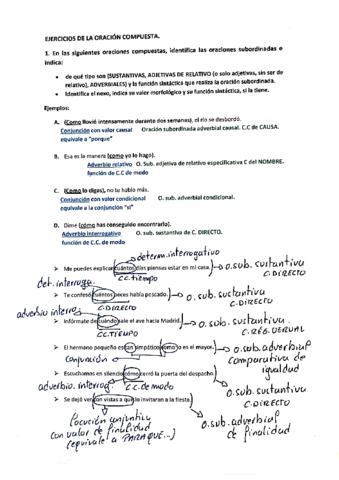 EJERCICIOS DE LA ORACIÓN COMPUESTA.
1. En las siguientes oraciones compuestas, identifica las oraciones subordinadas e
indica:
• de qué tipo son (SUSTANTIVAS, ADJETIVAS DE RELATIVO (o solo adjetivas, sin ser de
relativo), ADVERBIALES) y la función sintáctica que realiza la oración subordinada.
• Identifica el nexo, indica su valor morfológico y su función sintáctica, si la tiene.
Ejemplos:
A. (Como llovió intensamente durante dos semanas), el río se desbordó.
Conjunción con valor causal Oración subordinada adverbial causal. C.C de CAUSA.
equivale a "porque"
B. Esa es la manera (como yo lo hago).
Adverbio relativo O. Sub. adjetiva de relativo especificativa C del NOMBRE.
función de C.C de modo
C. (Como lo digas), no te hablo más.
Conjunción con valor condicional O. sub. adverbial condicional.
equivale a la conjunción "si"
D. Dime (cómo has conseguido encontrarlo).
Adverbio interrogativo O. sub. sustantiva de C. DIRECTO.
función de C.C. de modo
determ. interrogativo
➢ Me puedes explicar cuántos días piensas estar en mi casa. → O. sub. sustantiva
C. DIRECTO
C.C. tiempo
det. interroga.
➢ Te confesó cuántos peces había pescado. → O. sub. sustantiva
C. DIRECTO
C. DIRECTO
adverbio interrog
➢ Infórmate de cuándo sale el ave hacia Madrid. → O. sub. sustantiva
C. RÉG. VERBAL
C.C. TIEMPO
➢ El hermano pequeño es tan simpático como lo es el mayor. → O. sub. adverbial
comparativa de
igualdad
conjunción
➢ Escuchamos en silencio cómo cerró la puerta del despacho → O. sub. sustantiva
C. DIRECTO
adverbio. interrog. C.C. de modo
➢ Se dejó ver con vistas a que la invitaran a la fiesta.
O. sub. adverbial
de finalidad
locución conjuntiva
con valor de finalidad
(equivale a PARA QUE...)